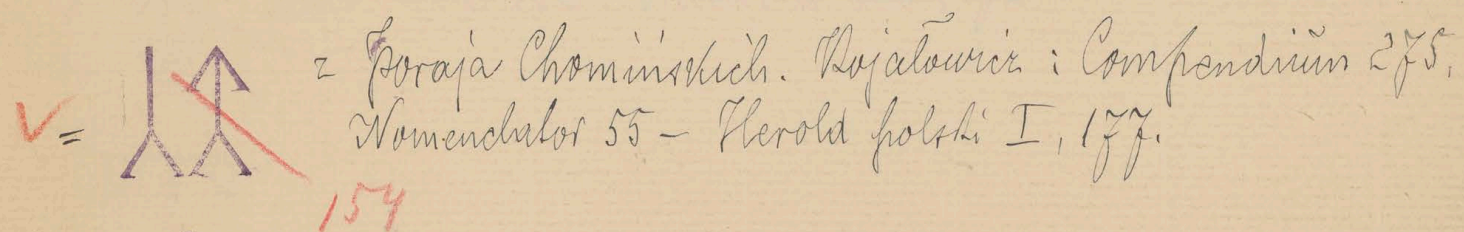 V = z Poraja Chomińskich. Kojałowicz : Compendium 275,
Nomenclator 55 – Herold polski I, 177.
154